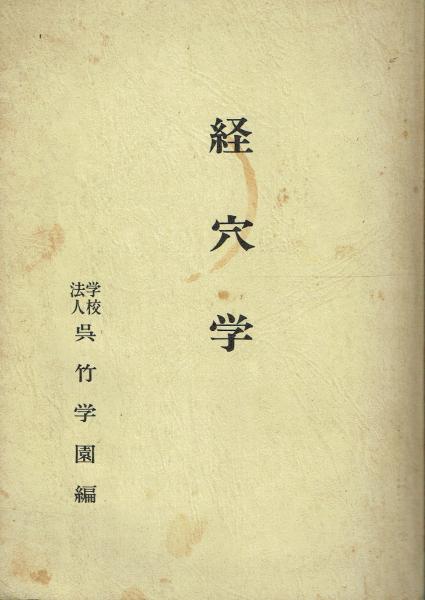 経穴学
学校法人呉竹学園編